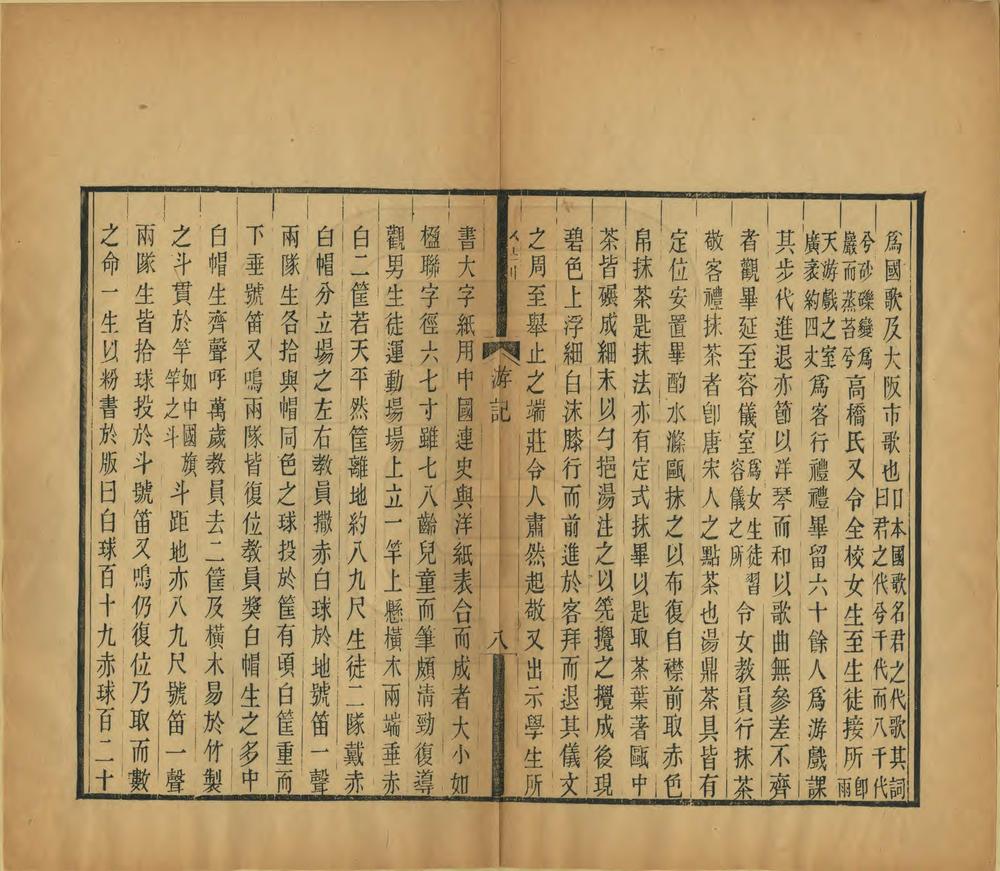 爲國歌及大阪市歌也日本國歌名君之代歌其詞曰君之代兮千代而八千代
兮砂礫變爲巖而蒸苔兮高橋氏又令全校女生至生徒接所卽雨
天游戲之室廣袤約四丈爲客行禮禮畢留六十餘人爲游戲課
其步代進退亦節以洋琴而和以歌曲無參差不齊
者觀畢延至容儀室爲女生徒習容儀之所令女教員行抹茶
敬客禮抹茶者卽唐宋人之點茶也湯鼎茶具皆有
定位安置畢酌水滌甌抹之以布復自襟前取赤色
帛抹茶匙抹法亦有定式抹畢以匙取茶葉著甌中
茶皆碾成細末以勺挹湯注之以筅攪之攪成後現
碧色上浮細白沫膝行而前進於客拜而退其儀文
之周至舉止之端莊令人肅然起敬又出示學生所
游記
八
書大字紙用中國連史與洋紙表合而成者大小如
楹聯字徑六七寸雖七八齡兒童而筆頗淸勁復導
觀男生徒運動場場上立一竿上懸橫木兩端垂赤
白二筐若天平然筐離地約八九尺生徒二隊戴赤
白帽分立場之左右教員撒赤白球於地號笛一聲
兩隊生各拾與帽同色之球投於筐有頃白筐重而
下垂號笛又鳴兩隊皆復位教員獎白帽生之多中
白帽生齊聲呼萬歲教員去二筐及橫木易於竹製
之斗貫於竿如中國旗竿之斗斗距地亦八九尺號笛一聲
兩隊生皆拾球投於斗號笛又鳴仍復位乃取而數
之命一生以粉書於版曰白球百十九赤球百二十